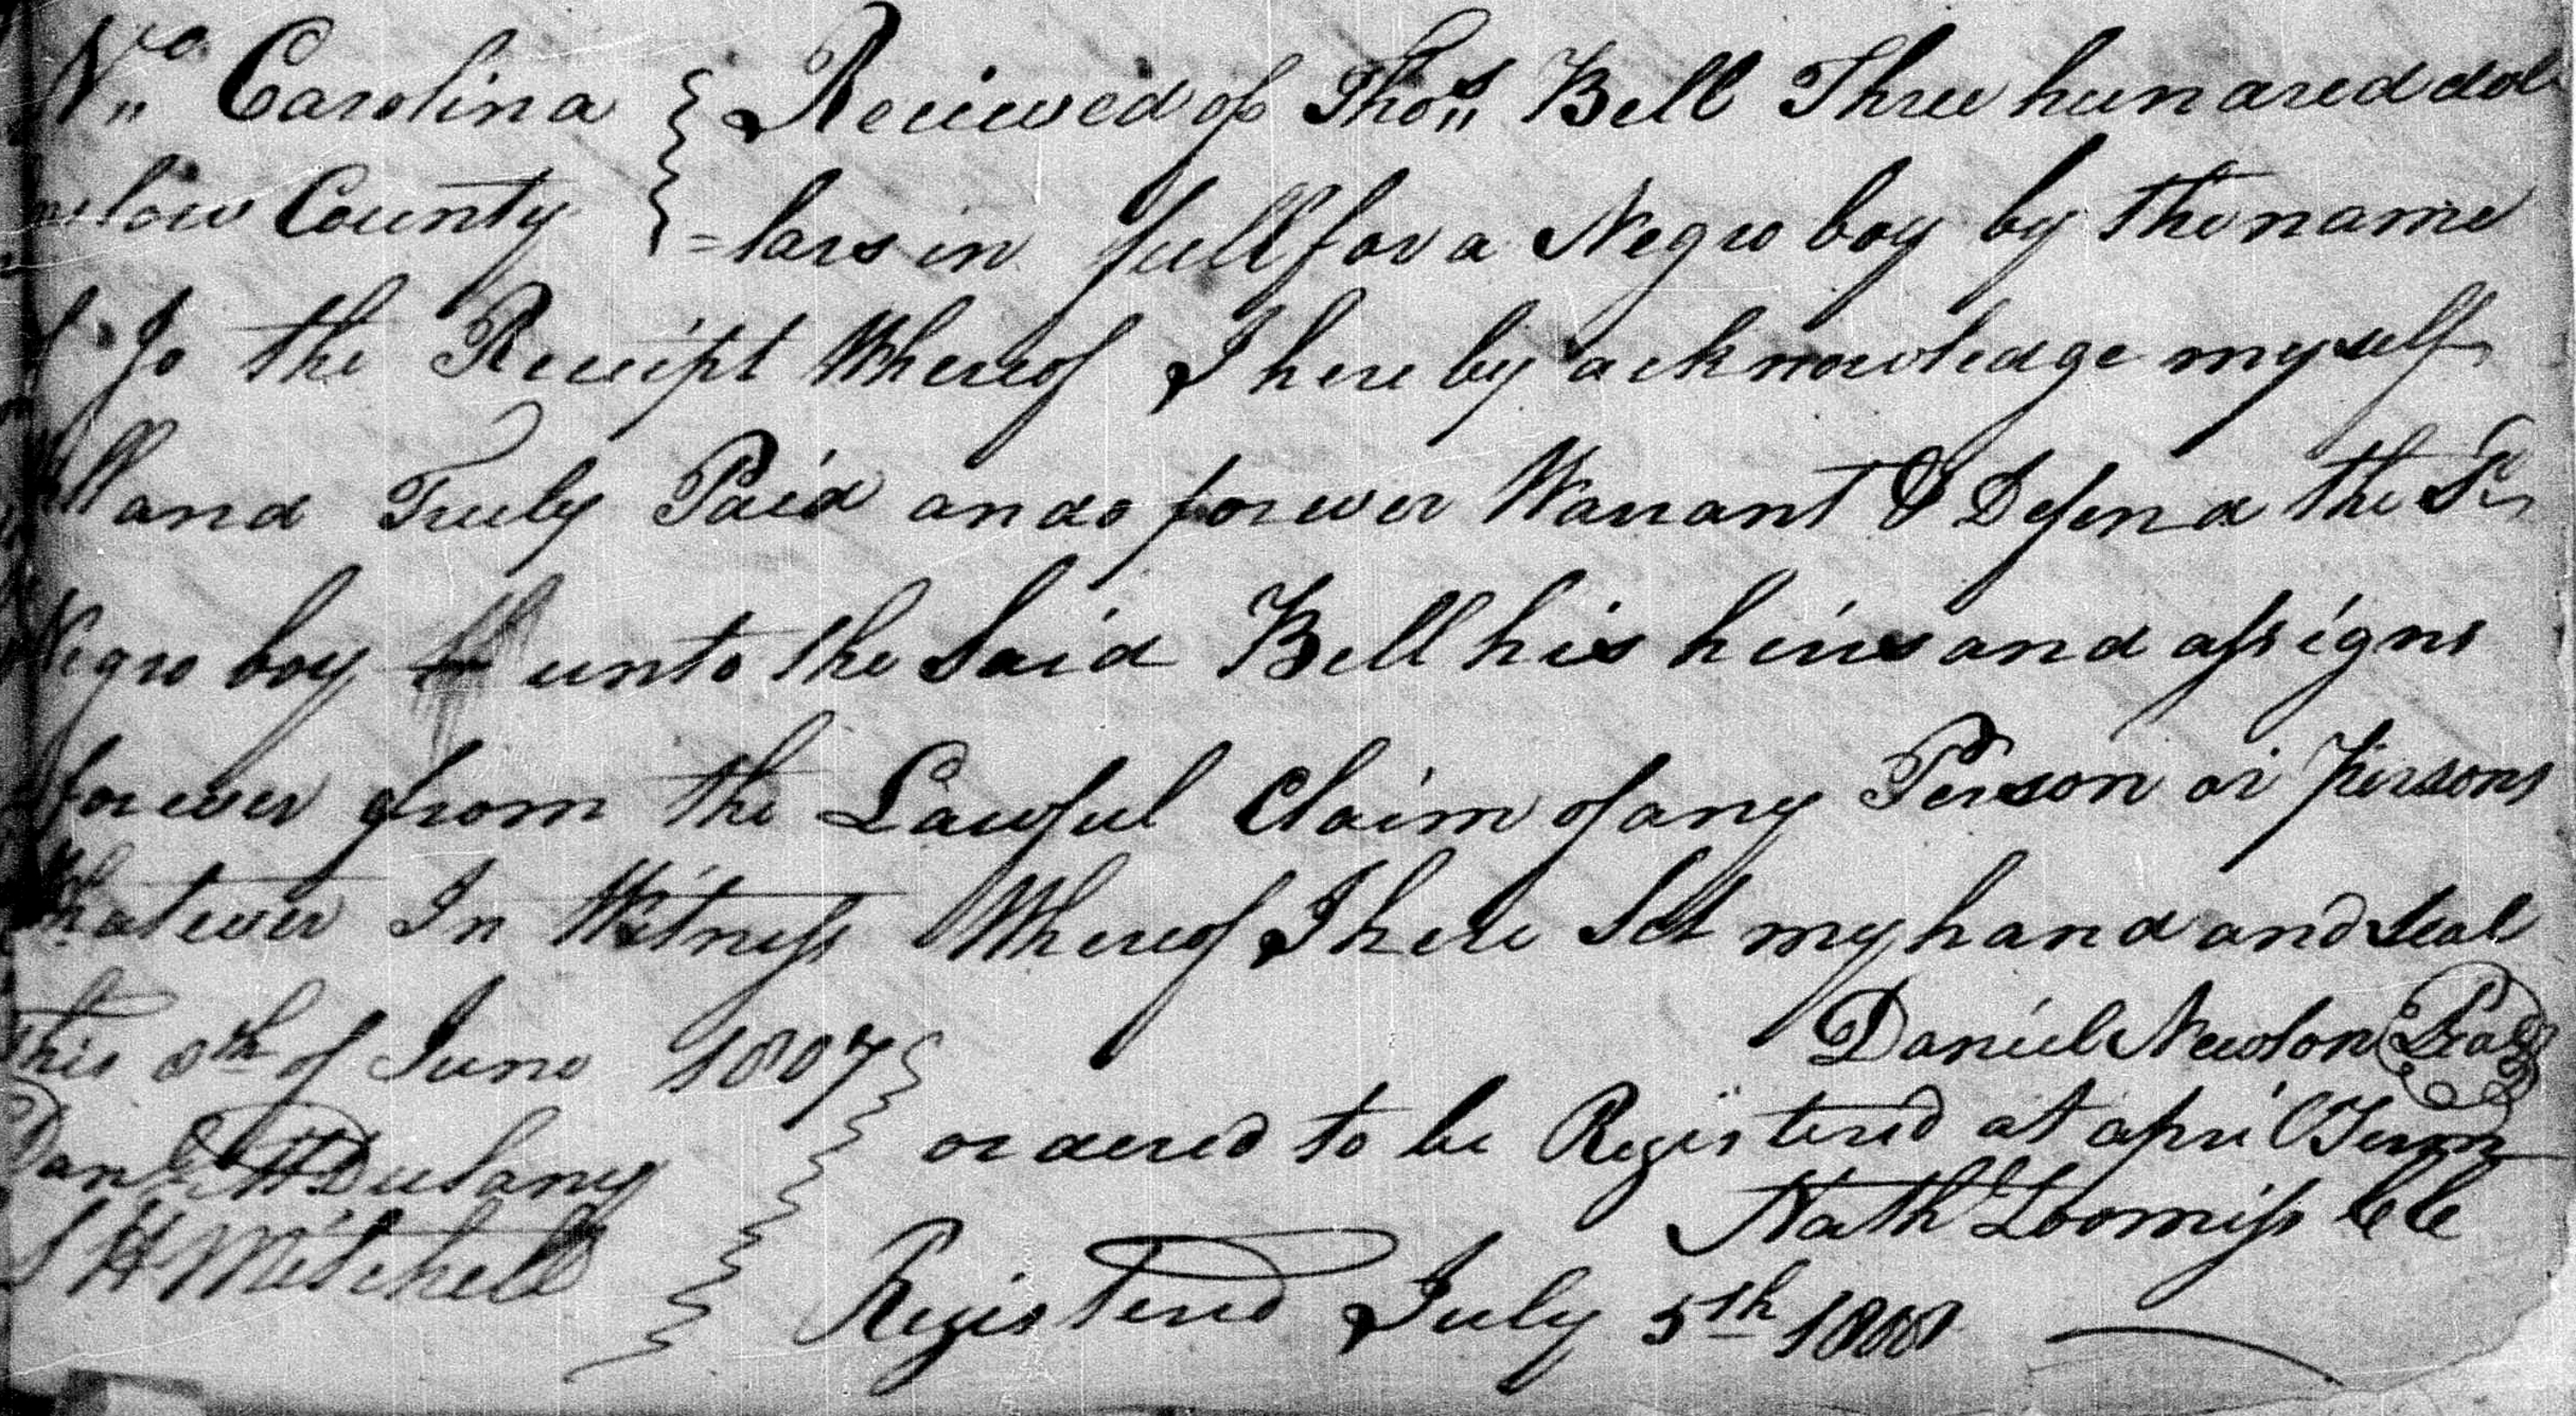 No,, Carolina Reciewed of Thos,, Bell Three hundred dol
nslow County =lars in full for a Negro boy by the name
f Jo the Receipt Whereof I hereby acknowledge myself
full and Truly Paid and do forever Warrant & Defend the Sd
Negro boy unto the Said Bell his heirs and assigns
forever from the Lawful Claim of any Person or persons
Whatever In Witness Whereof I here Set my hand and Seal
This 8th of June 1807 Daniel Newton Seal
Danl Dulany ordered to be Registered at april Term
S H Mitchell Nath Loomiss CC
Registered July 5th